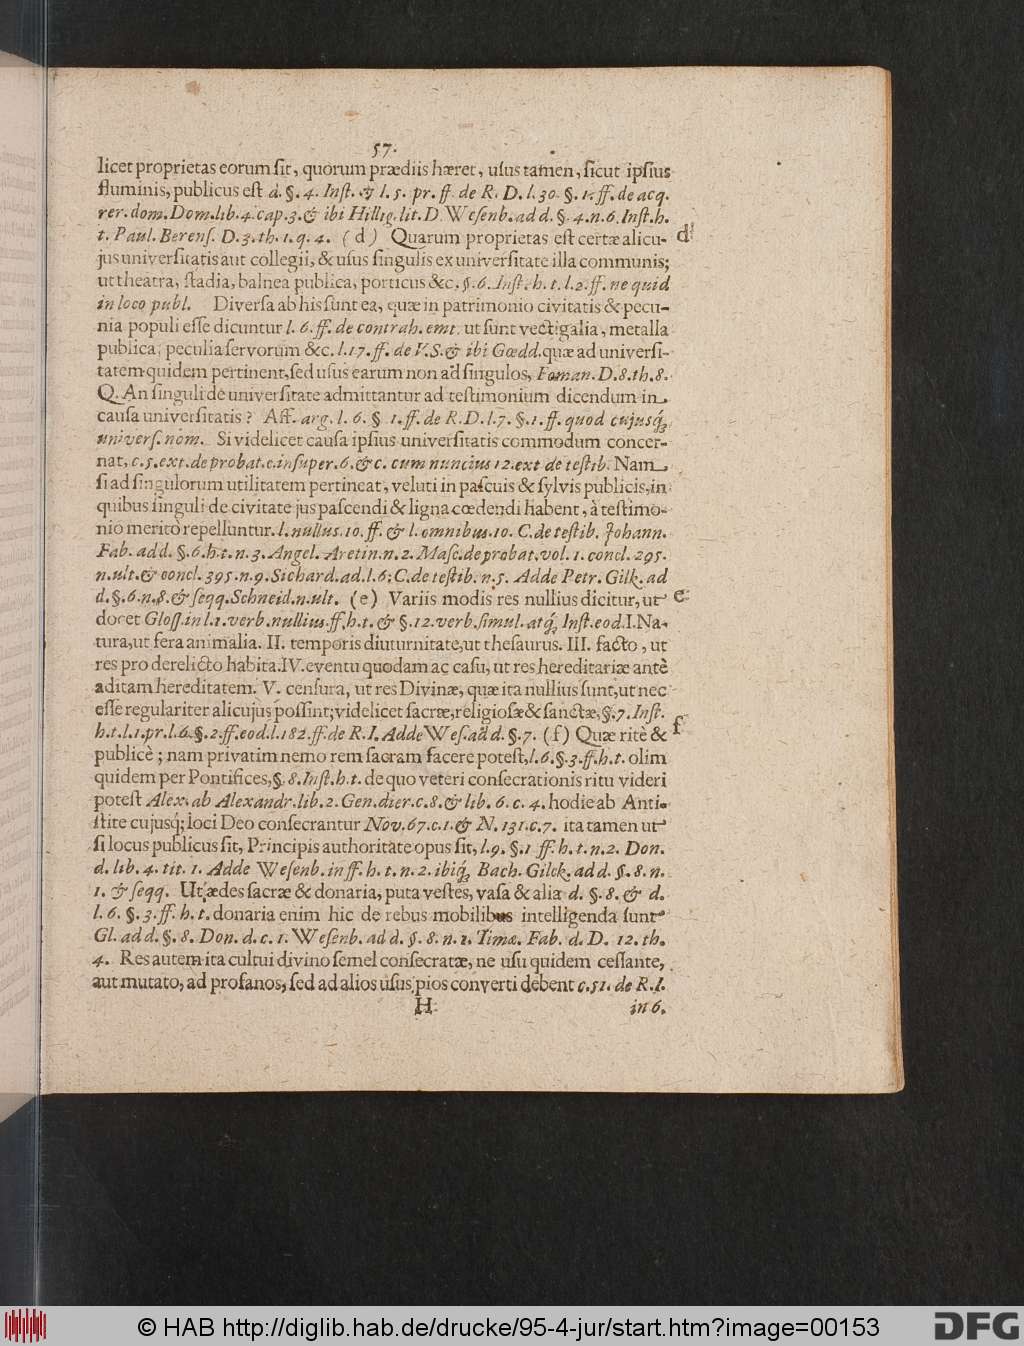 57.
licet proprietas eorum sit, quorum prædiis hæret, usus tamen, sicut ipsius
fluminis, publicus est d. §. 4. Inst. & l. 5. pr. ff. de R. D. l. 30. §. 1. ff. de acq.
rer. dom. Dom. lib. 4. cap. 3. & ibi Hillig. lit. D. Wesenb. ad d. §. 4. n. 6. Inst. h.
t. Paul. Berens. D. 3. th. 1. q. 4. (d) Quarum proprietas est certæ alicu- d
jus universitatis aut collegii, & usus singulis ex universitate illa communis;
ut theatra, stadia, balnea publica, porticus &c. §. 6. Inst. h. t. l. 2. ff. ne quid
in loco publ. Diversa ab his sunt ea, quæ in patrimonio civitatis & pecu-
nia populi esse dicuntur l. 6. ff. de contrah. emt. ut sunt vectigalia, metalla
publica, peculia servorum &c. l. 17. ff. de V. S. & ibi Gœdd. quæ ad universi-
tatem quidem pertinent, sed usus earum non ad singulos, Foman. D. 8. th. 8.
Q. An singuli de universitate admittantur ad testimonium dicendum in
causa universitatis? Aff. arg. l. 6. § 1. ff. de R. D. l. 7. §. 1. ff. quod cujusq́;
univers. nom. Si videlicet causa ipsius universitatis commodum concer-
nat, c. 5. ext. de probat. c. insuper. 6. & c. cum nuncius 12. ext de testib. Nam
si ad singulorum utilitatem pertineat, veluti in pascuis & sylvis publicis, in
quibus singuli de civitate jus pascendi & ligna cœdendi habent, à testimo-
nio meritò repelluntur. l. nullus. 10. ff. & l. omnibus. 10. C. de testib. Johann.
Fab. ad d. §. 6. h. t. n. 3. Angel. Aretin. n. 2. Masc. de probat. vol. 1. concl. 295.
n. ult. & concl. 395. n. 9. Sichard. ad. l. 6; C. de testib. n. 5. Adde Petr. Gilk. ad
d. §. 6. n. 8. & seqq. Schneid. n. ult. (e) Variis modis res nullius dicitur, ut e
docet Gloss. in l. 1. verb. nullius. ff. h. t. & §. 12. verb. simul. atq́; Inst. eod. I. Na-
tura, ut fera animalia. II. temporis diuturnitate, ut thesaurus. III. facto, ut
res pro derelicto habita. IV. eventu quodam ac casu, ut res hereditariæ antè
aditam hereditatem. V. censura, ut res Divinæ, quæ ita nullius sunt, ut nec
esse regulariter alicujus possint; videlicet sacræ, religiosæ & sanctæ, §. 7. Inst.
h. t. l. 1. pr. l. 6. §. 2. ff. eod. l. 182. ff. de R. I. Adde Wes. ad d. §. 7. (f) Quæ ritè & f
publicè; nam privatim nemo rem sacram facere potest, l. 6. §. 3. ff. h. t. olim
quidem per Pontifices, §. 8. Inst. h. t. de quo veteri consecrationis ritu videri
potest Alex. ab Alexandr. lib. 2. Gen. dier. c. 8. & lib. 6. c. 4. hodie ab Anti-
stite cujusq́; loci Deo consecrantur Nov. 67. c. 1. & N. 131. c. 7. ita tamen ut
si locus publicus sit, Principis authoritate opus sit, l. 9. §. 1 ff. h. t. n. 2. Don.
d. lib. 4. tit. 1. Adde Wesenb. in ff. h. t. n. 2. ibiq́; Bach. Gilck. ad d. §. 8. n.
1. & seqq. Ut ædes sacræ & donaria, puta vestes, vasa & alia d. §. 8. & d.
l. 6. §. 3. ff. h. t. donaria enim hic de rebus mobilibus intelligenda sunt
Gl. ad d. §. 8. Don. d. c. 1. Wesenb. ad d. §. 8. n. 1. Timæ. Fab. d. D. 12. th.
4. Res autem ita cultui divino semel consecratæ, ne usu quidem cessante,
aut mutato, ad profanos, sed ad alios usus pios converti debent c. 51. de R. I.
H in 6.
© HAB http://diglib.hab.de/drucke/95-4-jur/start.htm?image=00153
DFG